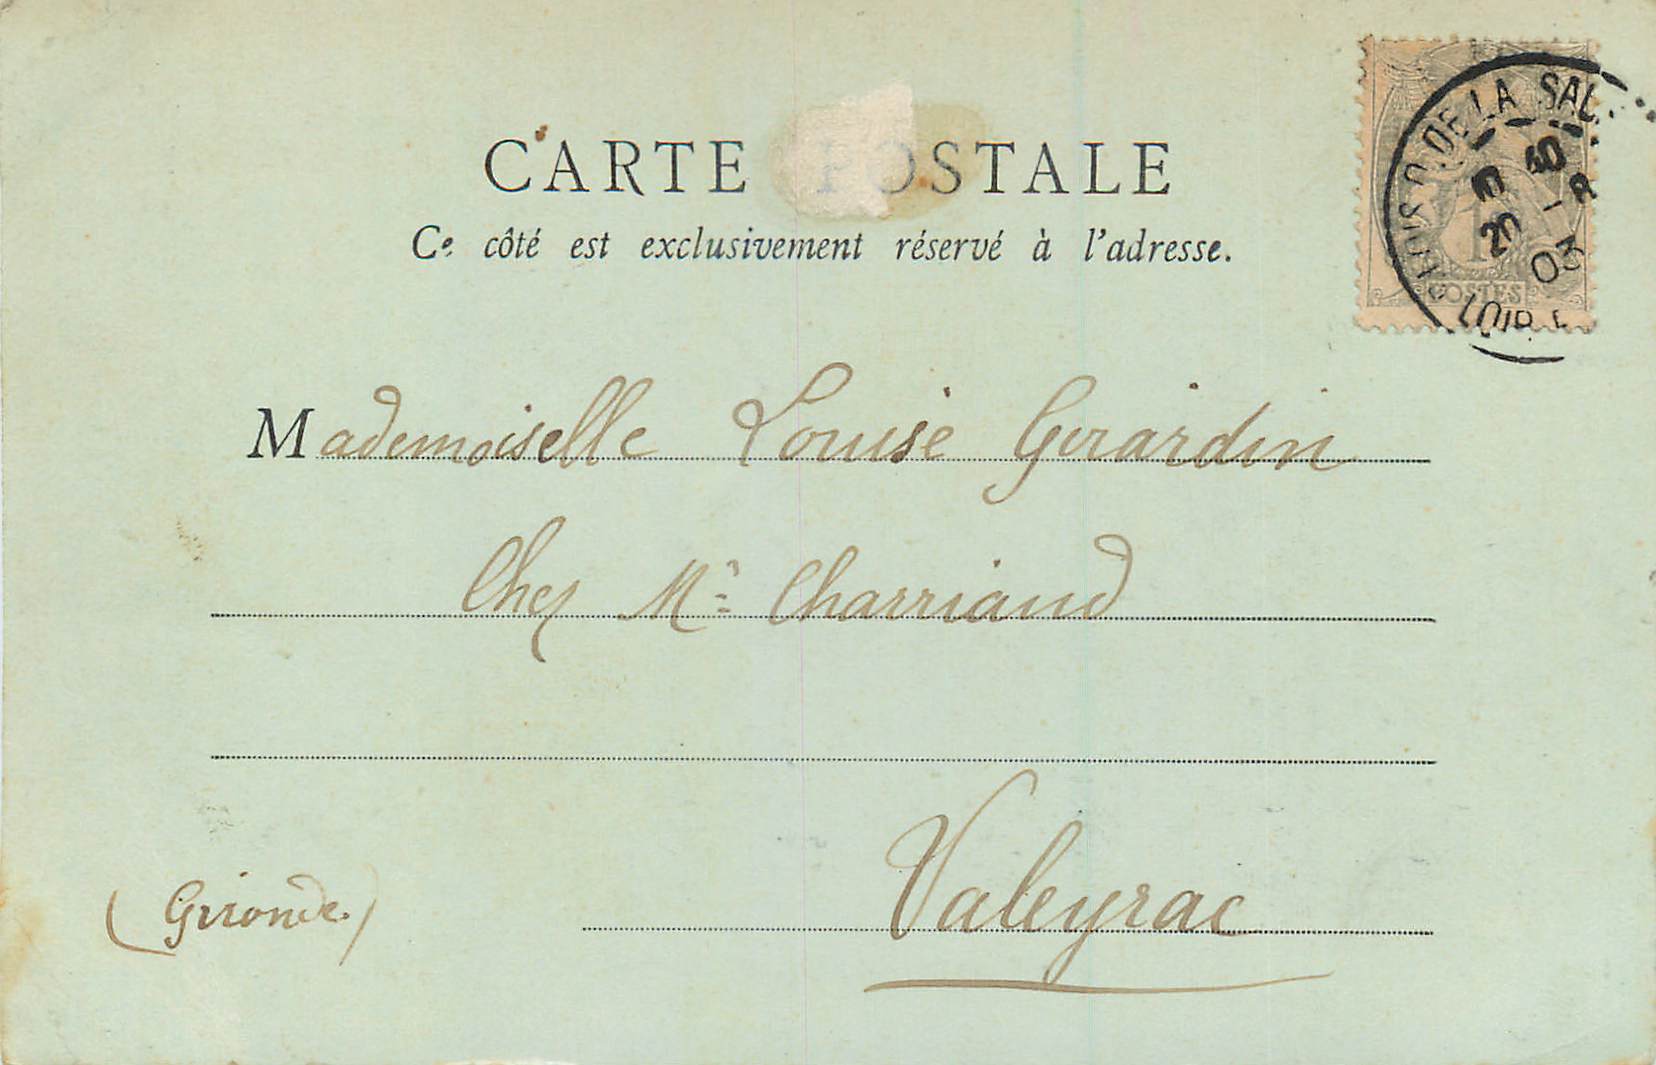 CARTE POSTALE
Ce côté est exclusivement réservé à l'adresse.
DE LA SAL
40
20 - 8
03
LOIRE
1
POSTES
Mademoiselle Louise Girardin
Chez Mr Charriaud
Valeyrac
(Gironde.)